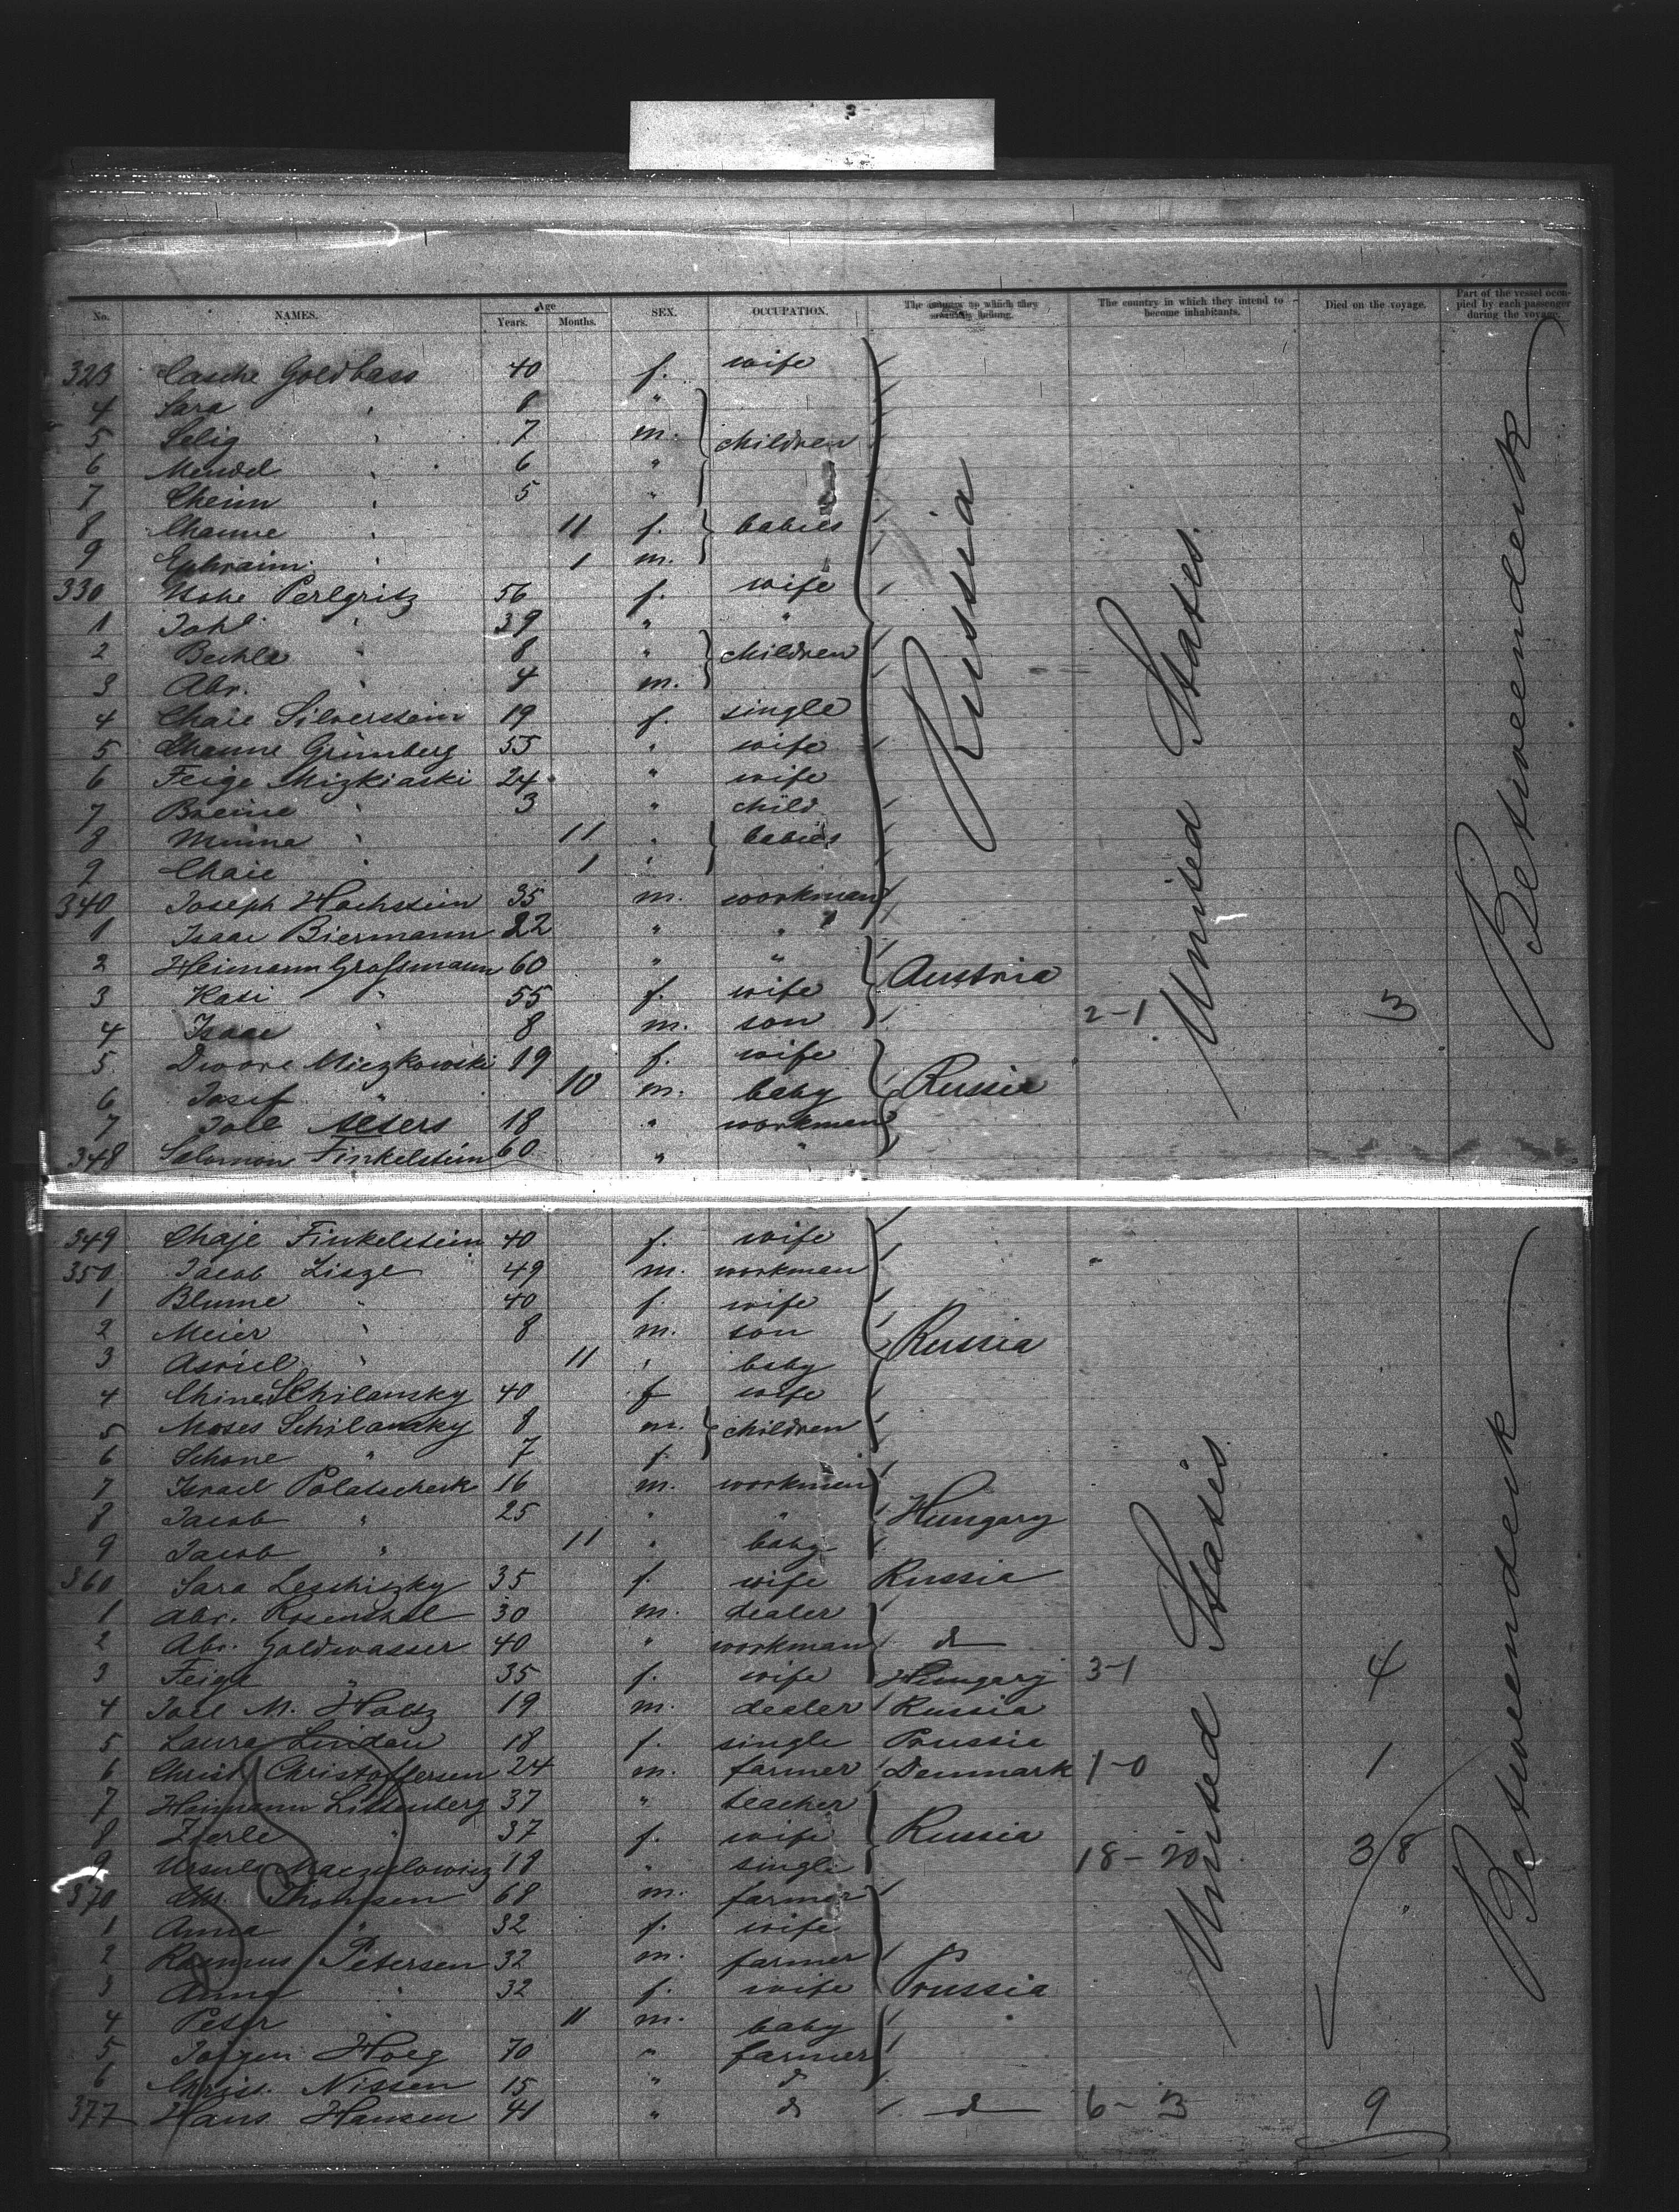 No. NAMES. Age Years. Months. SEX. OCCUPATION. The country to which they severally belong. The country in which they intend to become inhabitants. Died on the voyage. Part of the vessel occupied by each passenger during the voyage.
323 Casche Goldbass 40 f. wife
4 Sara " 8 "
5 Selig " 7 m. children
6 Mendel " 6 "
7 Cheim " 5 "
8 Channe " 11 f. babies
9 Ephraim " 1 m.
330 Perlgritz 56 f. wife
1 " 39 " "
2 " 8 " children
3 Abr. " 4 m.
4 Chaie Silverstein 19 f. single
5 Channe Grünberg 55 " wife
6 Feige Mizkiaski 24 " wife
7 Breine " 3 " child
8 Minna " 11 " babies
9 Chaie " 1 "
Russia
340 Joseph Hochstein 35 m. workman
1 Isaac Biermann 22 " "
2 Heimann Grossmann 60 " " Austria
3 Kati " 55 f. wife
4 Isaac " 8 m. son 2-1 3
5 Dwore Miezkowski 19 f. wife
6 Josef " 10 m. baby Russia
7 18 " workman
348 Salomon Finkelstein 60 " "
United States.
Betweendeck
349 Chaje Finkelstein 40 f. wife
350 Jacob Lisze 49 m. workman
1 Blume " 40 f. wife
2 Meier " 8 m. son Russia
3 Asriel " 11 " baby
4 Schilansky 40 f wife
5 Moses Schilansky 8 m. children
6 Schone " 7 f.
7 Israel Polatscheck 16 m. workman
8 Jacob " 25 " " Hungary
9 Jacob " 11 " baby
360 Sara Leschizky 35 f. wife Russia
1 Abr. Rosenthal 30 m. dealer
2 Abr. Goldwasser 40 " workman do
3 Feiga " 35 f. wife Hungary 3-1 4
4 Joel M. Holtz 19 m. dealer Russia
5 Laura Lindau 18 f. single Prussia
6 Christ. Christoffersen 24 m. farmer Denmark 1-0 1
7 Heimann Littenberg 37 " teacher
8 Zierle " 37 f. wife Russia
9 Ursula Maczulowicz 18 " single 18-20 38
370 Thomsen 68 m. farmer
1 Anna " 32 f. wife
2 Rasmus Petersen 32 m. farmer
3 Anna " 32 f. wife Prussia
4 Peter " 11 m. baby
5 Jörgen Hoeg 70 " farmer
6 Christ. Nissen 15 " do
377 Hans Hansen 41 " do do 6-3 9
United States
Betweendeck